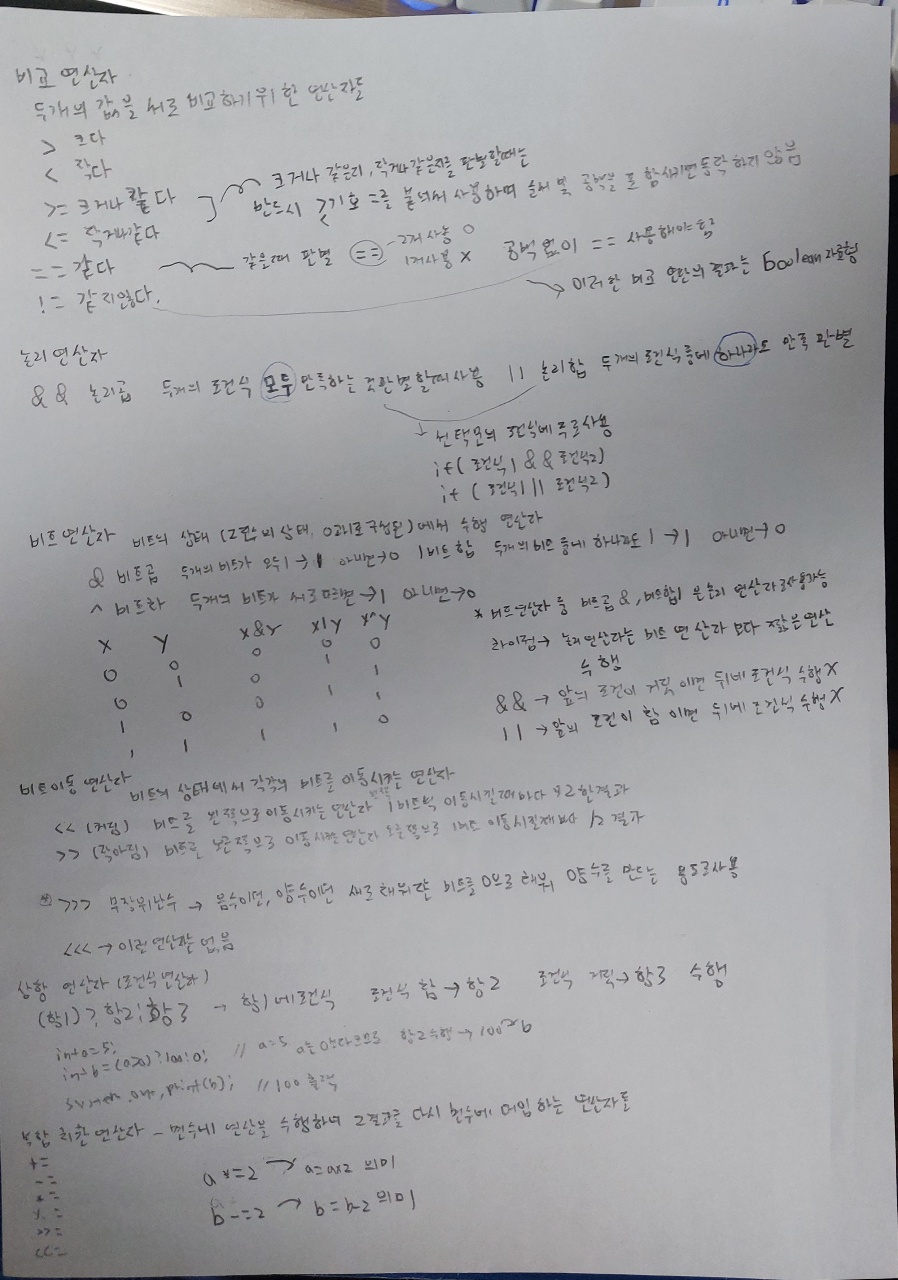 비교 연산자
두개의 값을 서로 비교하기 위한 연산자들
> 크다
< 작다
>= 크거나 같다
<= 작거나같다
== 같다
!= 같지않다.
크거나 같은지, 작거나 같은지를 판별할때는
반드시 >< 기호 =를 붙여써 사용하며 순서 및 공백을 포함시키면 동작 하지 않음
같은때 판별 == - 2개 사용 O
1개사용 X
공백없이 == 사용해야됨
→ 이러한 비교 연산의 결과는 boolean자료형
논리 연산자
&& 논리곱 두개의 조건식 모두 만족하는 것 판별할때 사용 || 논리합 두개의 조건식 중에 하나라도 만족 판별
→ 선택문의 조건식에 주로사용
if( 조건식1 && 조건식2)
if ( 조건식1 || 조건식2 )
비트연산자 비트의 상태 (2진수의 상태, 0과1로구성된) 에서 수행 연산자
& 비트곱 두개의 비트가 모두1 → 1 아니면→0 | 비트 합 두개의 비트 중에 하나라도 1 → 1 아니면→ 0
^ 비트차 두개의 비트가 서로다르면 → 1 아니면→0
X Y X&Y X|Y X^Y
0 0 0 0 0
0 1 0 1 1
1 0 0 1 1
1 1 1 1 0
* 비트연산자 중 비트곱 &, 비트합| 은 논리 연산자로사용가능
차이점→ 논리연산자는 비트 연산자 보다 짧은연산
수행
&& → 앞의 조건이 거짓 이면 뒤에 조건식 수행X
|| → 앞의 조건이 참 이면 뒤에 조건식 수행X
비트이동 연산자 비트의 상태에서 각각의 비트를 이동시키는 연산자
<< (커짐) 비트를 왼쪽으로 이동시키는 연산자 왼쪽 1비트씩 이동시킬때마다 *2한결과
>> (작아짐) 비트를 오른쪽으로 이동시키는 연산자 오른쪽으로 1비트 이동시킬때 마다 /2 결과
>>> → 음수이던, 양수이던 새로 채워질 비트를 0으로 채워 양수를 만드는 용도로사용
<<< → 이런 연산자는 없음
삼항 연산자 (조건식 연산자)
(항1) ? 항2 : 항3 → 항1에조건식 조건식 참 → 항2 조건식 거짓→ 항3 수행
int a=5;
int b = (a>0) ? 100 : 0; // a=5 a는 0보다크므로 항2수행 → 100 → b
System.out.print(b); // 100 출력
복합 치환 연산자 - 변수에 연산을 수행하여 그결과를 다시 변수에 대입 하는 연산자들
+=
-=
*=
%=
>>=
<<=
a *=2 → a=a*2 의미
b -=2 → b = b-2 의미